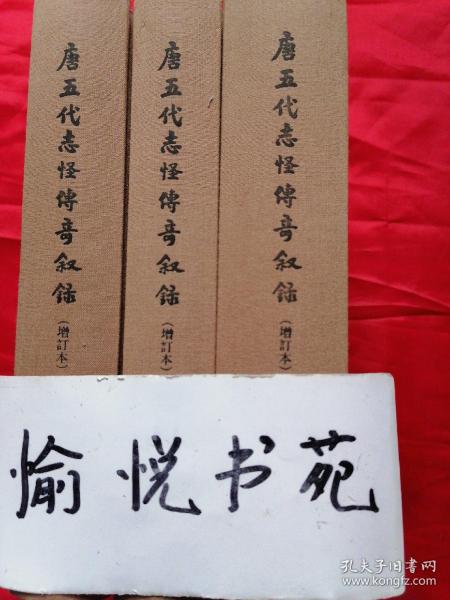 唐五代志怪傳奇叙録
(增訂本)
唐五代志怪傳奇叙録
(增訂本)
唐五代志怪傳奇叙録
(增訂本)
愉悦书苑
孔夫子旧书网
www.kongfz.com